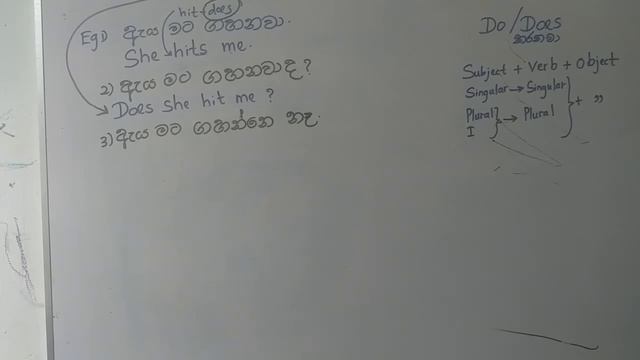 hit-does
Eg1) ඇය මට ගහනවා.
She hits me.
2) ඇය මට ගහනවාද?
Does she hit me ?
3) ඇය මට ගහන්නෙ නෑ.
Do/Does
කරනවා
Subject + Verb + Object
Singular → Singular
Plural → Plural } + "
I